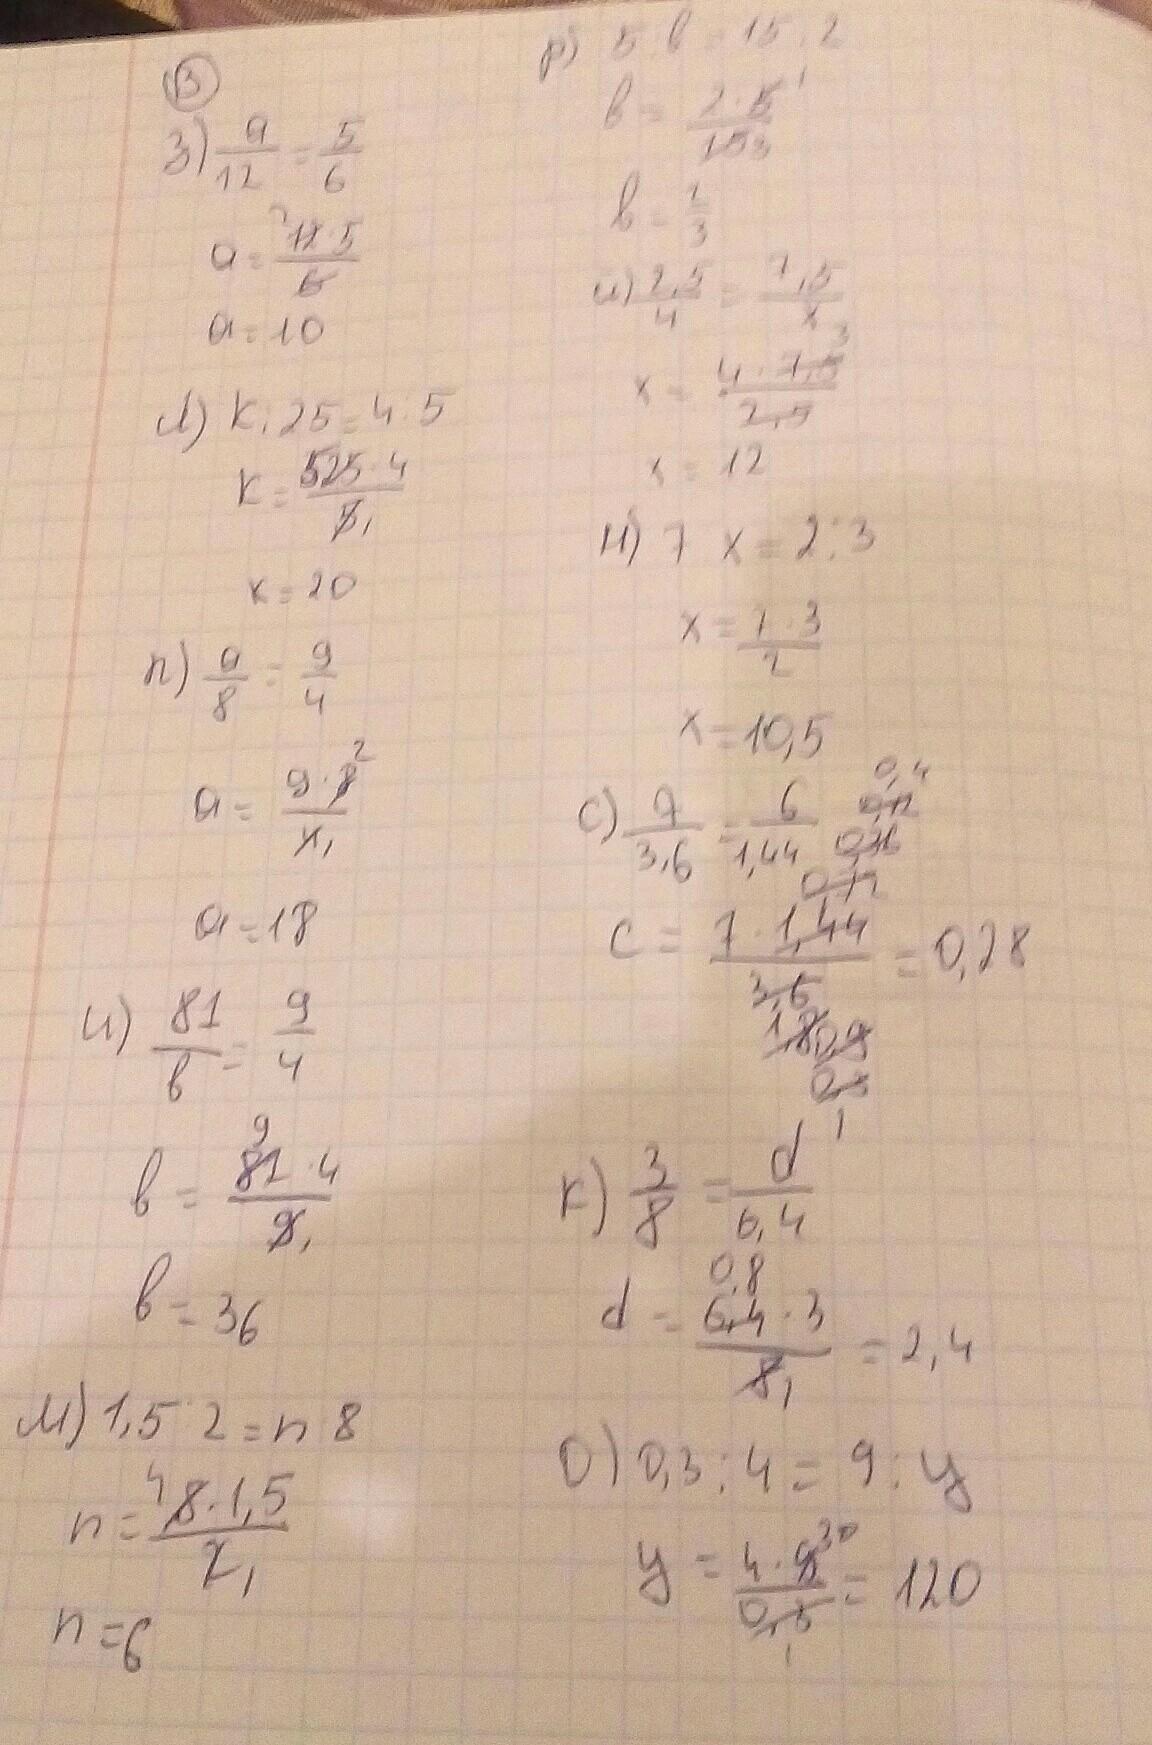 В
З) a/12 = 5/6
a = 12·5/6
a = 10
Л) k:25 = 4:5
k = 525·4/5 1
k = 20
П) a/8 = 9/4
a = 9·8 2/4 1
a = 18
И) 81/b = 9/4
9
b = 81·4/9 1
b = 36
М) 1,5 2 = n 8
n = 4 8·1,5/2 1
n = 6
р) 5 b = 15:2
b = 2·5 1/15 3
b = 2/3
и) 2,5/4 = 7,5/x
x = 4·7,5 3/2,5
x = 12
Н) 7 x = 2:3
x = 7·3/2
x = 10,5
0,4
С) 7/3,6 = 6/1,44
c = 7·1,44/3,6 = 0,28
1
К) 3/8 = d/6,4
0,8
d = 6,4·3/8 1 = 2,4
О) 0,3:4 = 9:y
y = 4·9 30/0,3 1 = 120